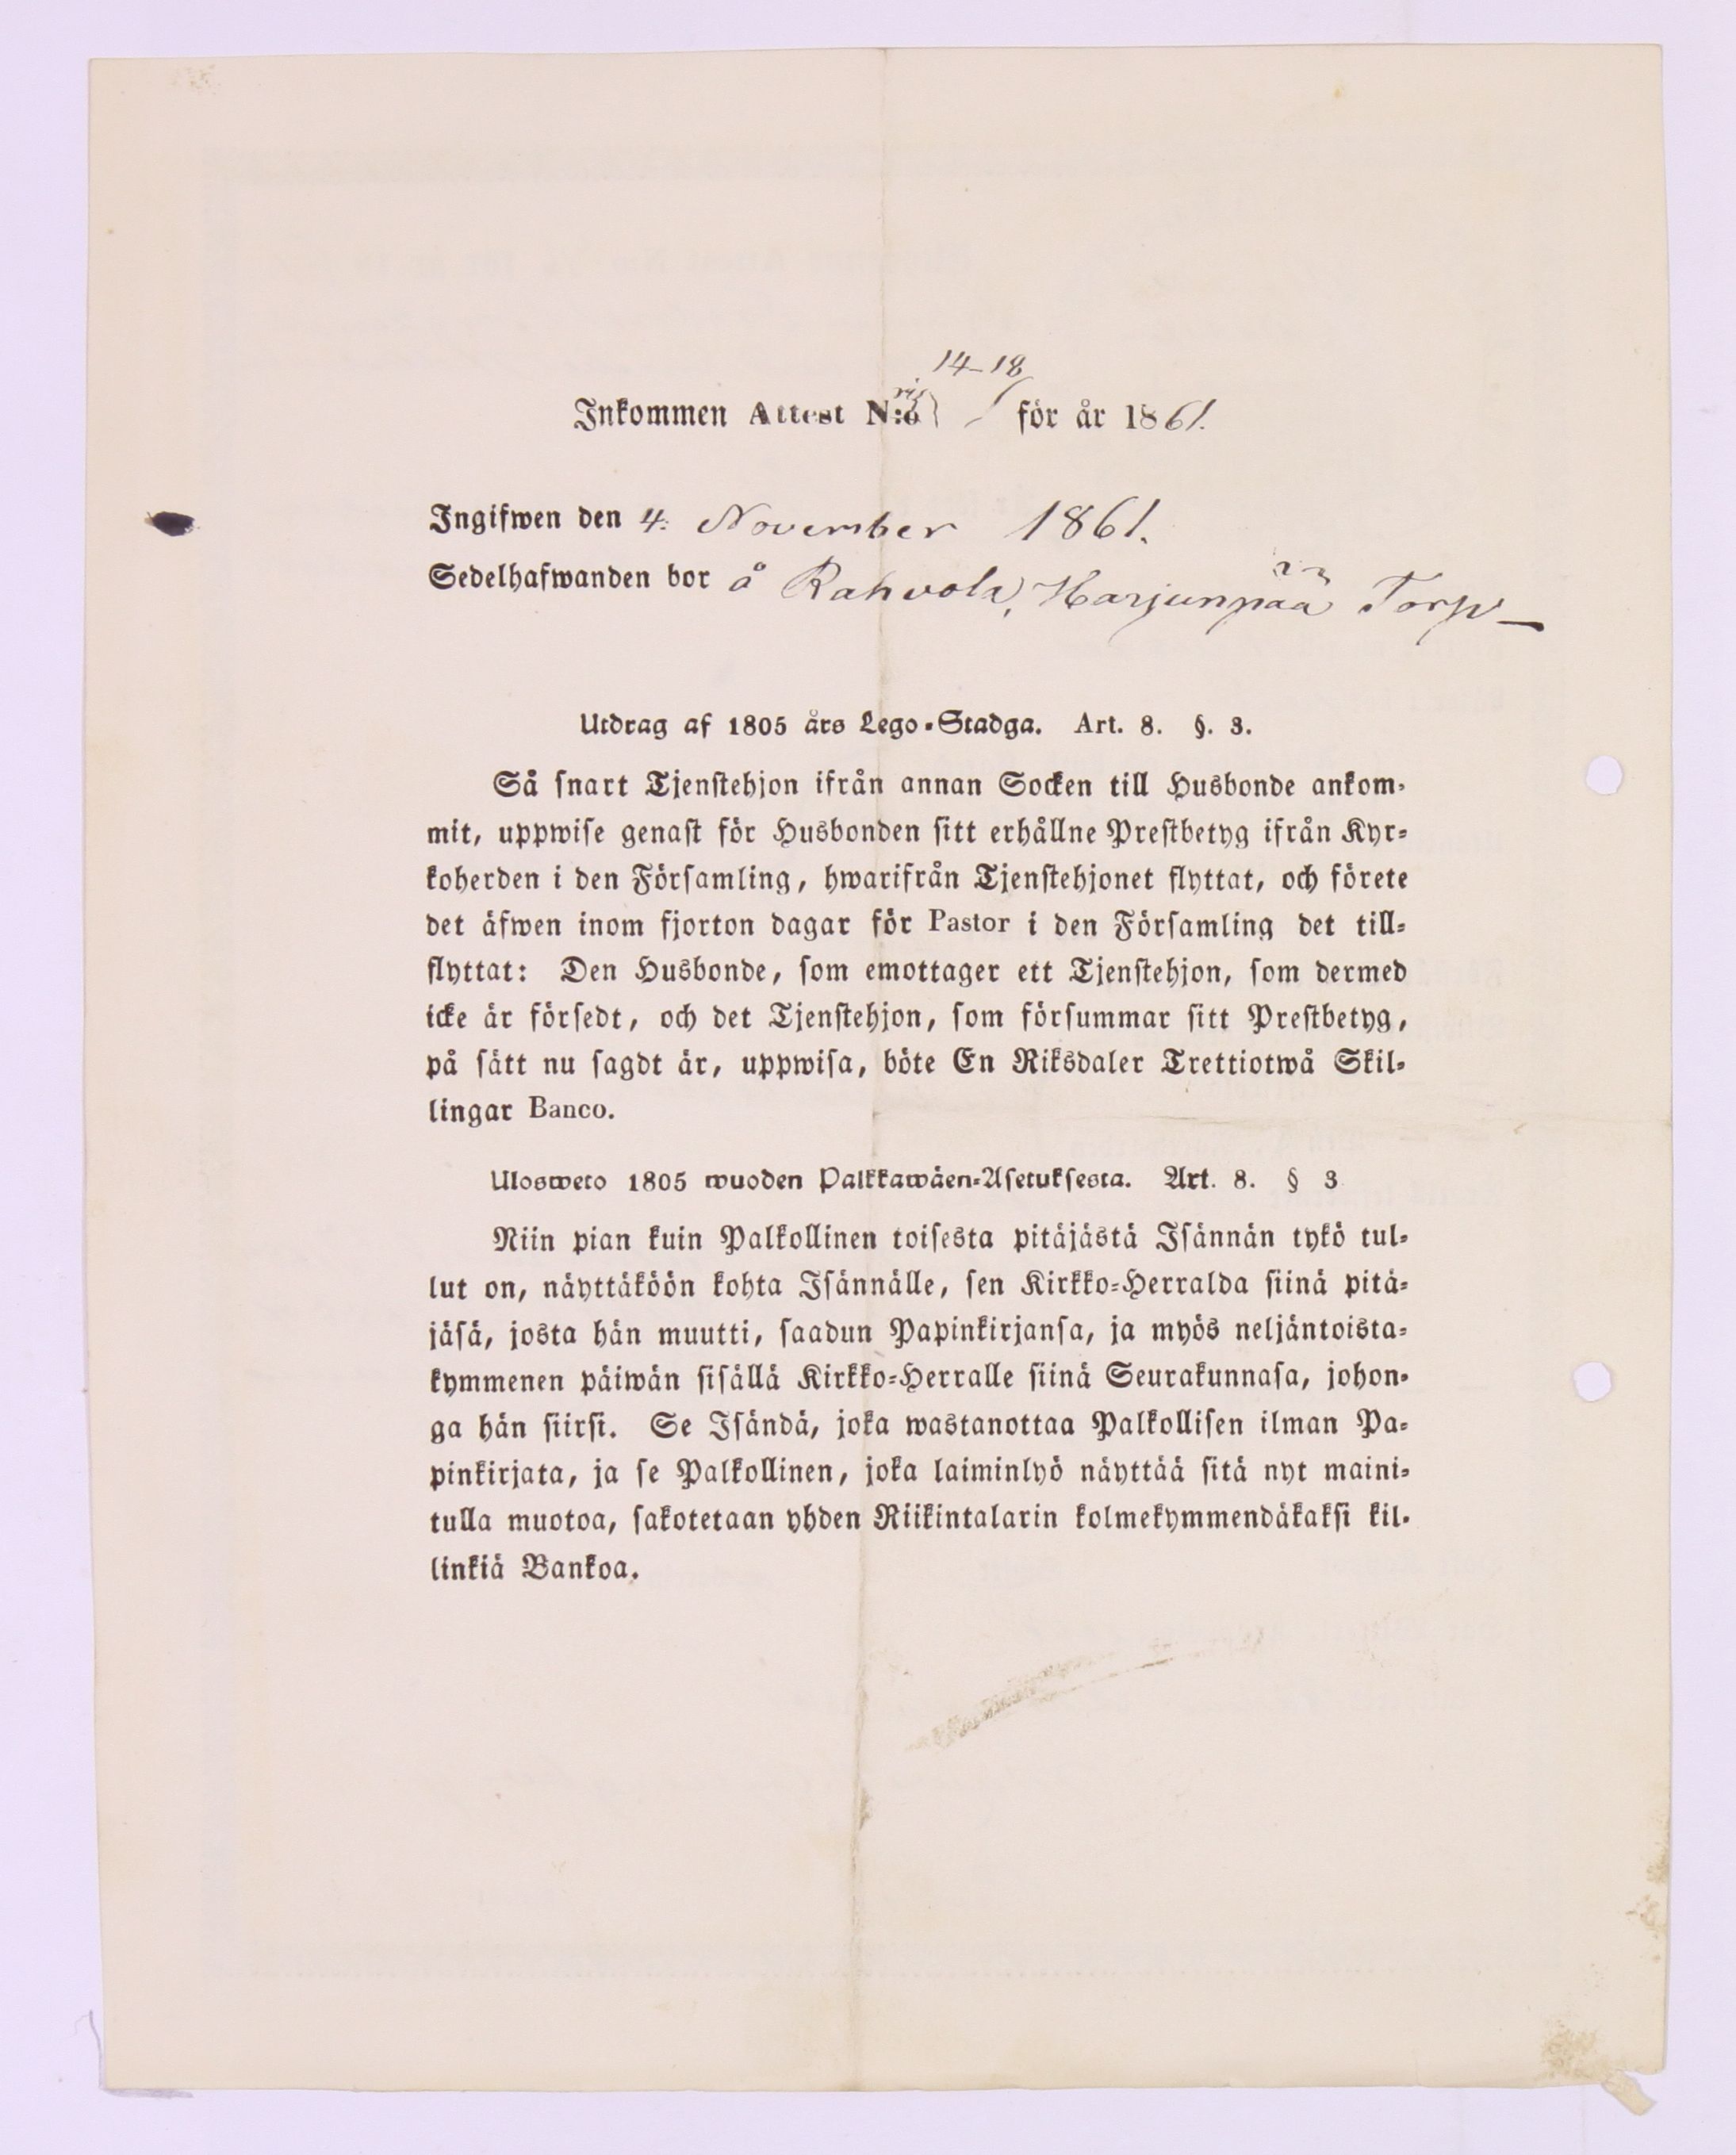 14-18
Inkommen Attest N:ris för år 1861.
Ingifwen den 4. November 1861.
Sedelhafwanden bor å Rahvola, Harjunpää Torp
Utdrag af 1805 års Lego-Stadga. Art. 8. §. 3.
Så snart Tjenstehjon ifrån annan Socken till Husbonde ankom-
mit, uppwise genast för Husbonden sitt erhållne Prestbetyg ifrån Kyr-
koherden i den Församling, hwarifrån Tjenstehjonet flyttat, och förete
det äfwen inom fjorton dagar för Pastor i den Församling det till-
flyttat: Den Husbonde, som emottager ett Tjenstehjon, som dermed
icke är försedt, och det Tjenstehjon, som försummar sitt Prestbetyg,
på sätt nu sagdt är, uppwisa, böte En Riksdaler Trettiotwå Skil-
lingar Banco.
Ulosweto 1805 wuoden Palkkawäen-Asetuksesta. Art. 8. § 3
Niin pian kuin Palkollinen toisesta pitäjästä Isännän tykö tul-
lut on, näyttäköön kohta Isännälle, sen Kirkko-Herralda siinä pitä-
jäsä, josta hän muutti, saadun Papinkirjansa, ja myös neljäntoista-
kymmenen päiwän sisällä Kirkko-Herralle siinä Seurakunnasa, johon-
ga hän siirsi. Se Isändä, joka wastanottaa Palkollisen ilman Pa-
pinkirjata, ja se Palkollinen, joka laiminlyö näyttää sitä nyt maini-
tulla muotoa, sakotetaan yhden Riikintalarin kolmekymmendäkaksi kil-
linkiä Bankoa.